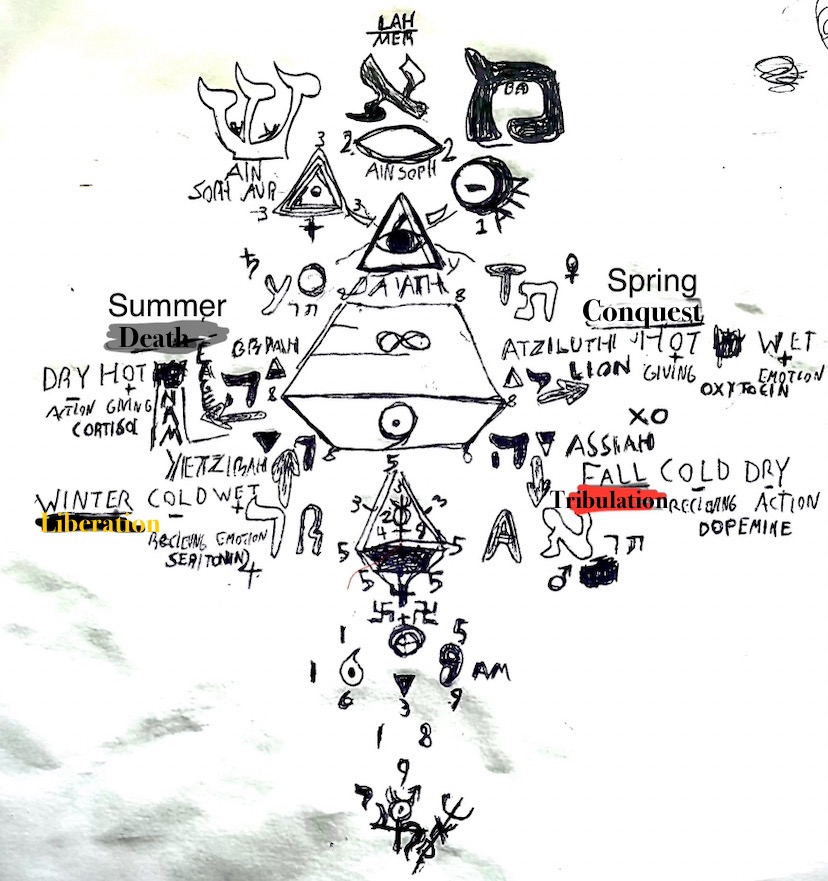 LAH
MER
ש א מ
AIN
SOPH AUR
3
3
3
2 2
AIN SOPH
1
DAIATH
8 8
Summer
Death
Spring
Conquest
BRIAH
ATZILUTH HOT WET
DRY HOT
LION
GIVING EMOTION
ACTION GIVING
OXYTOCIN
CORTISOL
8 8
9
XO
ASSIAH
YETZIRAH
5
FALL COLD DRY
WINTER COLD WET
Liberation
Tribulation
RECIEVING ACTION
DOPEMINE
RECIEVING EMOTION
SERITONIN
R A
3 3
2
4 9
5 5
5 5
卐 卍
1 5
1 AM
6 9
3
1 8
9